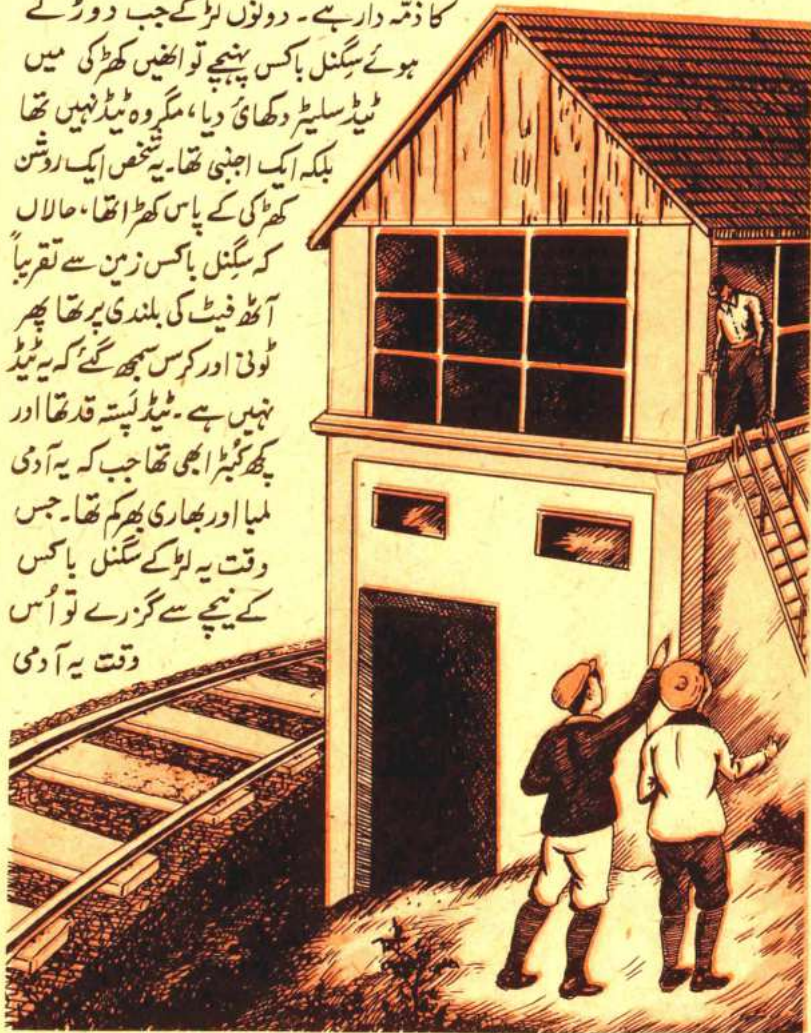 کا ذمّہ دار ہے۔ دونوں لڑکے جب دوڑتے
ہوئے سِگنل باکس پہنچے تو انھیں کھڑکی میں
ٹیڈ سلیٹر دکھائی دیا، مگر وہ ٹیڈ نہیں تھا
بلکہ ایک اجنبی تھا۔ یہ شخص ایک روشن
کھڑکی کے پاس کھڑا تھا، حالاں
کہ سگنل باکس زمین سے تقریباً
آٹھ فیٹ کی بلندی پر تھا پھر
ٹونی اور کرس سمجھ گئے کہ یہ ٹیڈ
نہیں ہے۔ ٹیڈ پستہ قد تھا اور
کچھ کُبڑا بھی تھا جب کہ یہ آدمی
لمبا اور بھاری بھرکم تھا۔ جس
وقت یہ لڑکے سگنل باکس
کے نیچے سے گزرے تو اُس
وقت یہ آدمی